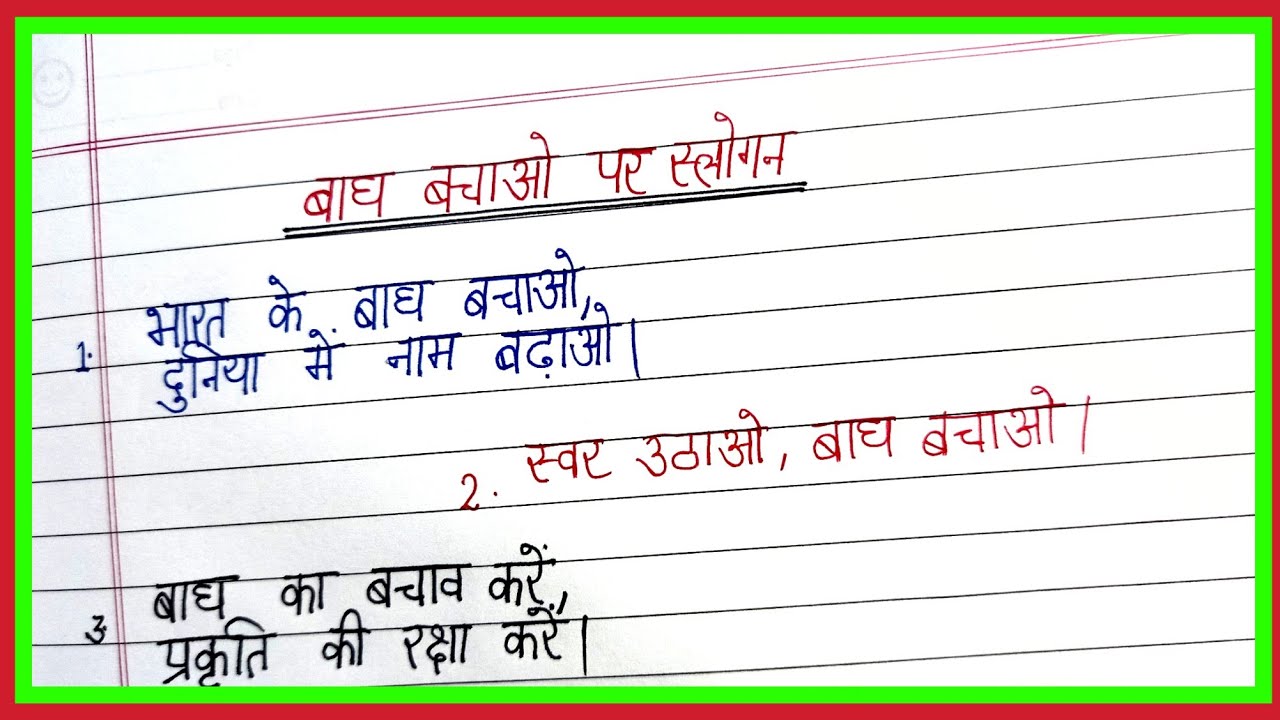 बाघ बचाओ पर स्लोगन
भारत के बाघ बचाओ,
1. दुनिया में नाम बढ़ाओ।
2. स्वर उठाओ, बाघ बचाओ।
बाघ का बचाव करें,
3. प्रकृति की रक्षा करें।